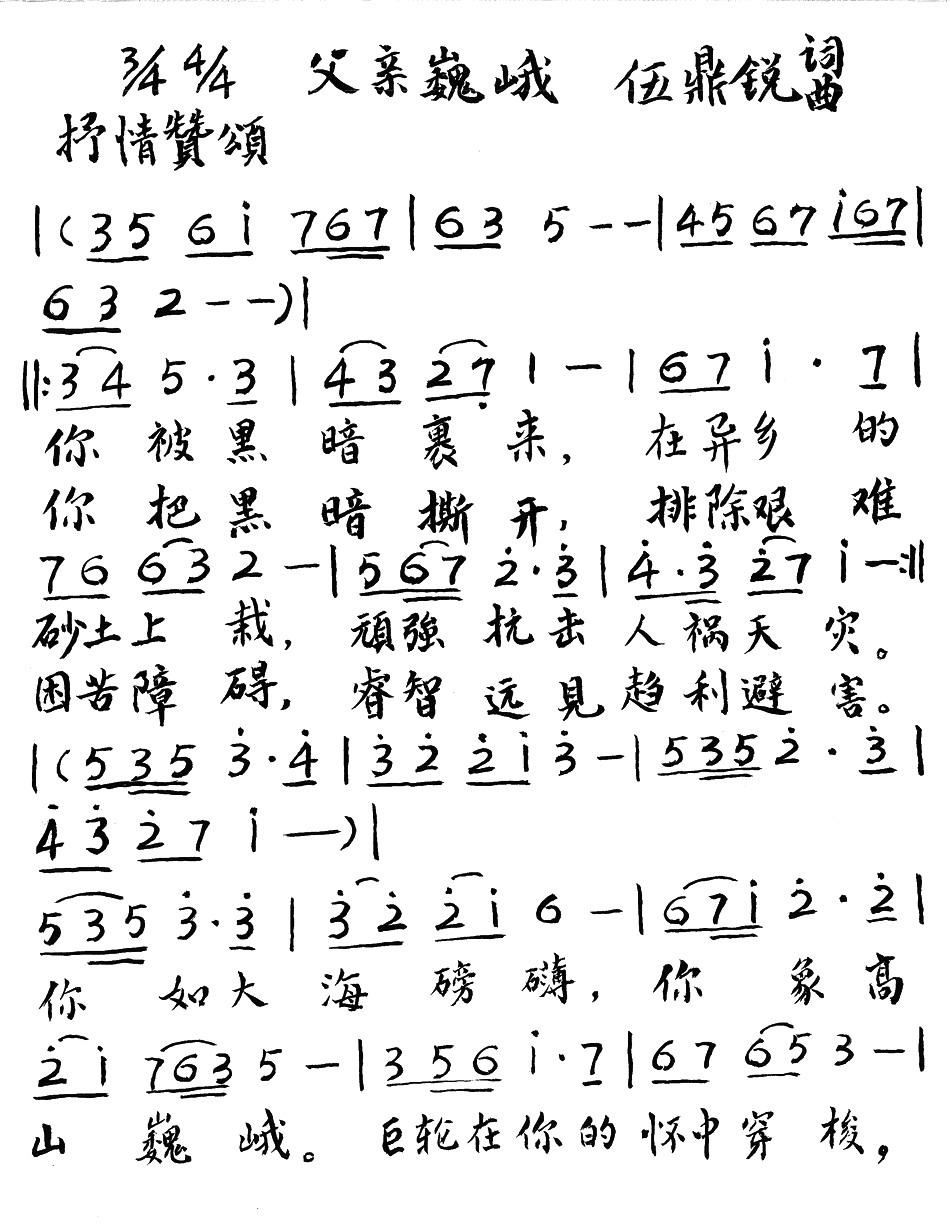 3/4 4/4 父亲巍峨 伍鼎銳 词曲
抒情贊頌
|(35 6i 767|63 5--|45 67 i67|
63 2--)|
‖:34 5·3|43 27̣ 1-|67 i·7|
你被黑暗裹来，在异乡的
你把黑暗撕开，排除艰难
76 63 2-|567 2̇·3̇|4̇·3̇ 2̇7 i-:‖
砂土上栽，頑強抗击人祸天灾。
困苦障碍，睿智远見趋利避害。
|(535 3̇·4̇|3̇2̇ 2̇i 3̇-|535 2̇·3̇|
4̇3̇ 2̇7 i-)|
535 3̇·3̇|3̇2̇ 2̇i 6-|67i 2̇·2̇|
你如大海磅礴，你象高
2̇i 763 5-|356 i·7|67 65 3-|
山巍峨。巨轮在你的怀中穿梭，